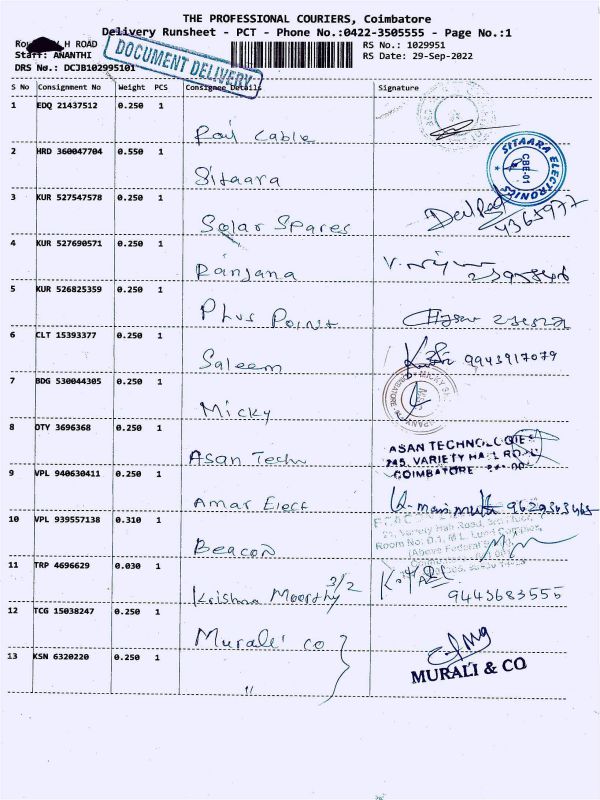 THE PROFESSIONAL COURIERS, Coimbatore
Delivery Runsheet - PCT - Phone No.:0422-3505555 - Page No.:1
H ROAD
RS No.: 1029951
Staff: ANANTHI
RS Date: 29-Sep-2022
DRS No.: DCJB102995101
DOCUMENT DELIVERY
S No Consignment No Weight PCS Consignee Details Signature
1 EDQ 21437512 0.250 1
Rail Cable
2 HRD 360047704 0.550 1
Sitaara
SITAARA ELECTRONICS
CBE-01
3 KUR 527547578 0.250 1
Solar Spares
4 KUR 527690571 0.250 1
Ranjana
5 KUR 526825359 0.250 1
Plus Point
6 CLT 15393377 0.250 1
Saleem 9943917079
7 BDG 530044305 0.250 1
Micky
8 OTY 3696368 0.250 1
Asan Tech
ASAN TECHNOLOGIES
745, VARIETY HALL ROAD
COIMBATORE
9 VPL 940630411 0.250 1
Amar Elect
10 VPL 939557138 0.310 1
Beacon
Variety Hall Road, 3rd Floor,
Room No: D.1, M.L. Complex,
(Above Federal
11 TRP 4696629 0.030 1
Krishna Moorthy 3/2
9443683555
12 TCG 15038247 0.250 1
Murali co
13 KSN 6320220 0.250 1
MURALI & CO
11